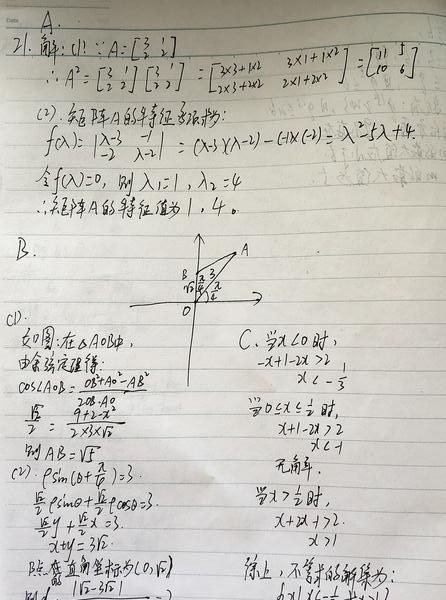 A.
21. 解:(1) ∵A=[3 1; 2 2]
∴A²=[3 1; 2 2][3 1; 2 2]=[3×3+1×2 3×1+1×2; 2×3+2×2 2×1+2×2]=[11 5; 10 6]
(2). 矩阵A的特征多项式为:
f(λ)=|λ-3 -1; -2 λ-2|=(λ-3)(λ-2)-(-1)×(-2)=λ²-5λ+4.
令f(λ)=0, 则 λ₁=1, λ₂=4
∴矩阵A的特征值为1,4。
B.
A
B
3
√2
π/4
π/4
O
(1)
如图:在△AOB中,
由余弦定理得:
cos∠AOB=(OB²+AO²-AB²)/(2OB·AO)
√2/2=(9+2-x²)/(2×3×√2)
则AB=√5
(2). ρsin(θ+π/4)=3.
√2/2 ρsinθ+√2/2 ρcosθ=3.
√2/2 y+√2/2 x=3.
x+y=3√2
B点 直角坐标为(0,√2)
|√2-3√2|
C. 当x<0时,
-x+1-2x>2
x<-1/3
当0≤x≤1/2时,
x+1-2x>2
x<-1
无解.
当x>1/2时,
x+2x-1>2.
x>1
综上,不等式的解集为: